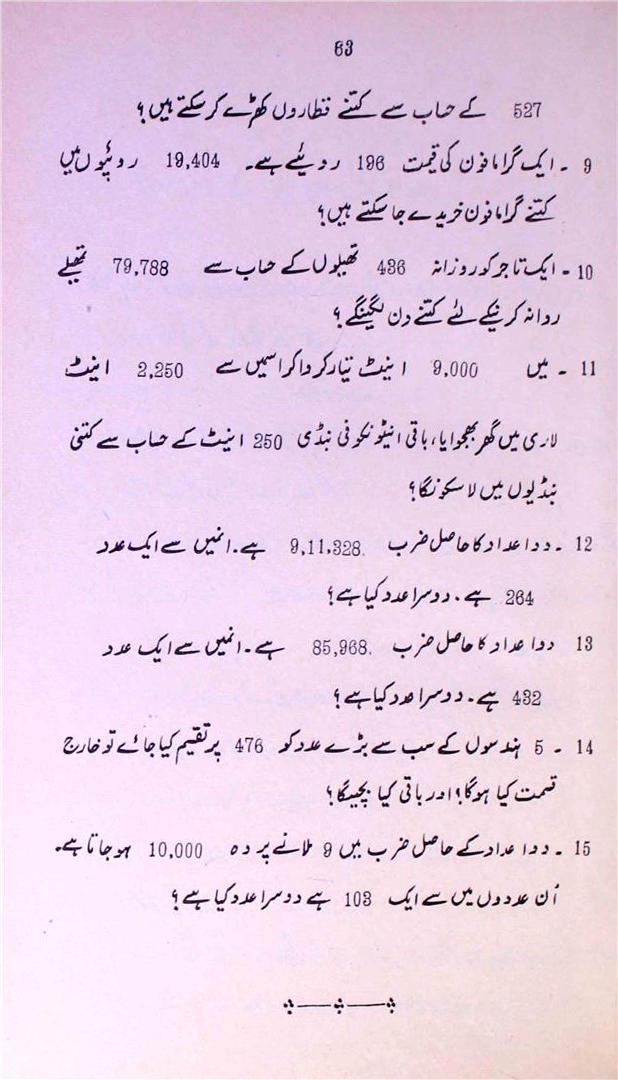 63
527 کے حساب سے کتنے قطاروں کھڑے کرسکتے ہیں؟
9 ۔ ایک گراموفون کی قیمت 196 روپئے ہے۔ 19,404 روپیوں میں
کتنے گراموفون خریدے جاسکتے ہیں؟
10 ۔ ایک تاجر کو روزانہ 436 تھیلوں کے حساب سے 79,788 تھیلے
روانہ کرنیکے لئے کتنے دن لگینگے ؟
11 ۔ میں 9,000 اینٹ تیار کرواکر اسمیں سے 2,250 اینٹ
لاری میں گھر بھجوایا، باقی اینٹونکو فی بنڈی 250 اینٹ کے حساب سے کتنی
بنڈیوں میں لاسکونگا؟
12 ۔ دو اعداد کا حاصل ضرب 9,11,328. ہے۔ انمیں سے ایک عدد
264 ہے۔ دوسرا عدد کیا ہے؟
13 دو اعداد کا حاصل ضرب 85,968. ہے۔ انمیں سے ایک عدد
432 ہے۔ دوسرا عدد کیا ہے؟
14 ۔ 5 ہندسوں کے سب سے بڑے عدد کو 476 پر تقسیم کیا جائے تو خارج
قسمت کیا ہوگا؟ اور باقی کیا بچیگا؟
15 ۔ دو اعداد کے حاصل ضرب میں 9 ملانے پر دہ 10,000 ہوجاتا ہے۔
اُن عددوں میں سے ایک 103 ہے دوسرا عدد کیا ہے؟